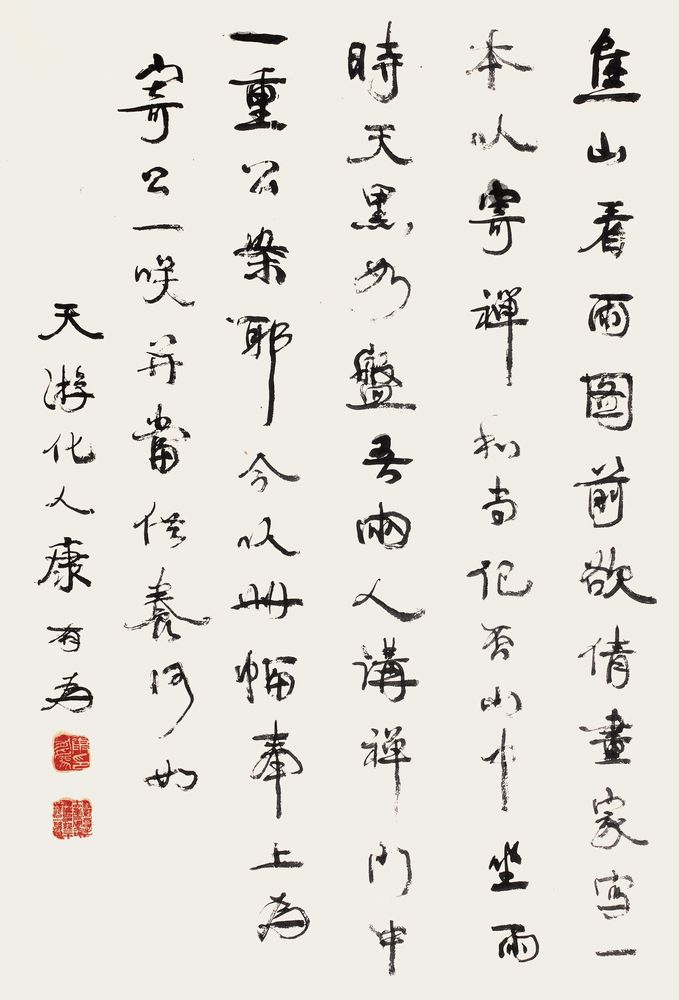 焦山看雨圖前欲倩畫家寫一
本以寄禪和尚記否山中坐雨
時天黑如盤吾兩人講禪門中
一重公案耶今以冊幅奉上為
寄公一咲并當供養何如
天游化人康有為